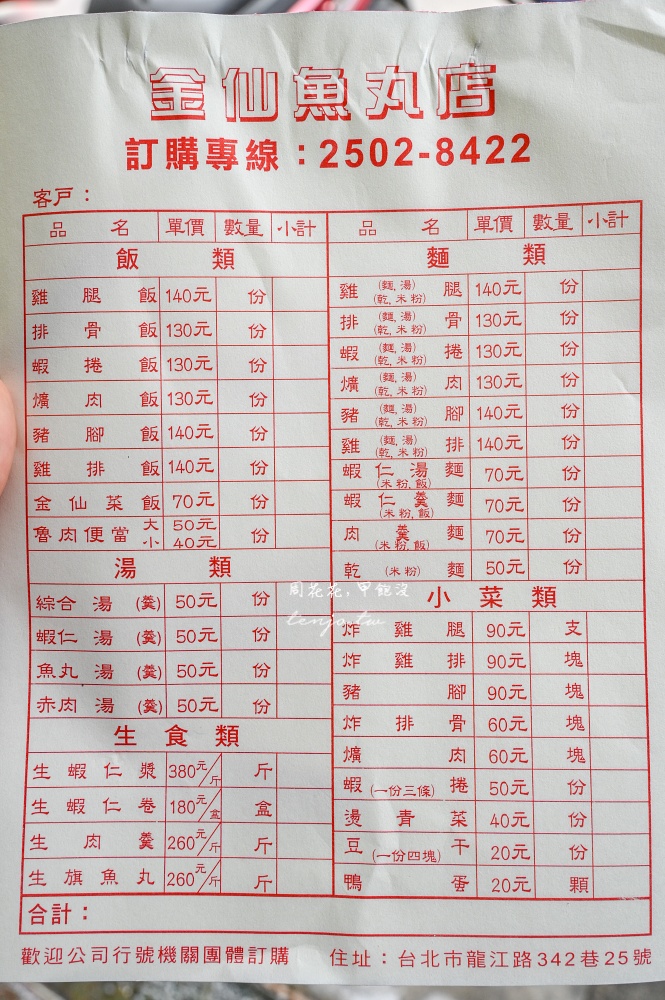 金仙魚丸店
訂購專線：2502-8422
客戶：
品名 單價 數量 小計
飯類
雞腿飯 140元 份
排骨飯 130元 份
蝦捲飯 130元 份
爌肉飯 130元 份
豬腳飯 140元 份
雞排飯 140元 份
金仙菜飯 70元 份
魯肉便當 大 50元 小 40元 份
湯類
綜合湯(羹) 50元 份
蝦仁湯(羹) 50元 份
魚丸湯(羹) 50元 份
赤肉湯(羹) 50元 份
生食類
生蝦仁漿 380元/斤 斤
生蝦仁卷 180元/盒 盒
生肉羹 260元/斤 斤
生旗魚丸 260元/斤 斤
品名 單價 數量 小計
麵類
雞(麵,湯)(乾,米粉)腿 140元 份
排(麵,湯)(乾,米粉)骨 130元 份
蝦(麵,湯)(乾,米粉)捲 130元 份
爌(麵,湯)(乾,米粉)肉 130元 份
豬(麵,湯)(乾,米粉)腳 140元 份
雞(麵,湯)(乾,米粉)排 140元 份
蝦仁湯麵(米粉,飯) 70元 份
蝦仁羹麵(米粉,飯) 70元 份
肉羹麵(米粉,飯) 70元 份
乾(米粉)麵 50元 份
小菜類
炸雞腿 90元 支
炸雞排 90元 塊
豬腳 90元 塊
炸排骨 60元 塊
爌肉 60元 塊
蝦(一份三條)捲 50元 份
燙青菜 40元 份
豆(一份四塊)干 20元 份
鴨蛋 20元 顆
合計：
歡迎公司行號機關團體訂購 住址：台北市龍江路342巷25號
周花花，甲飽沒
tenjo.tw